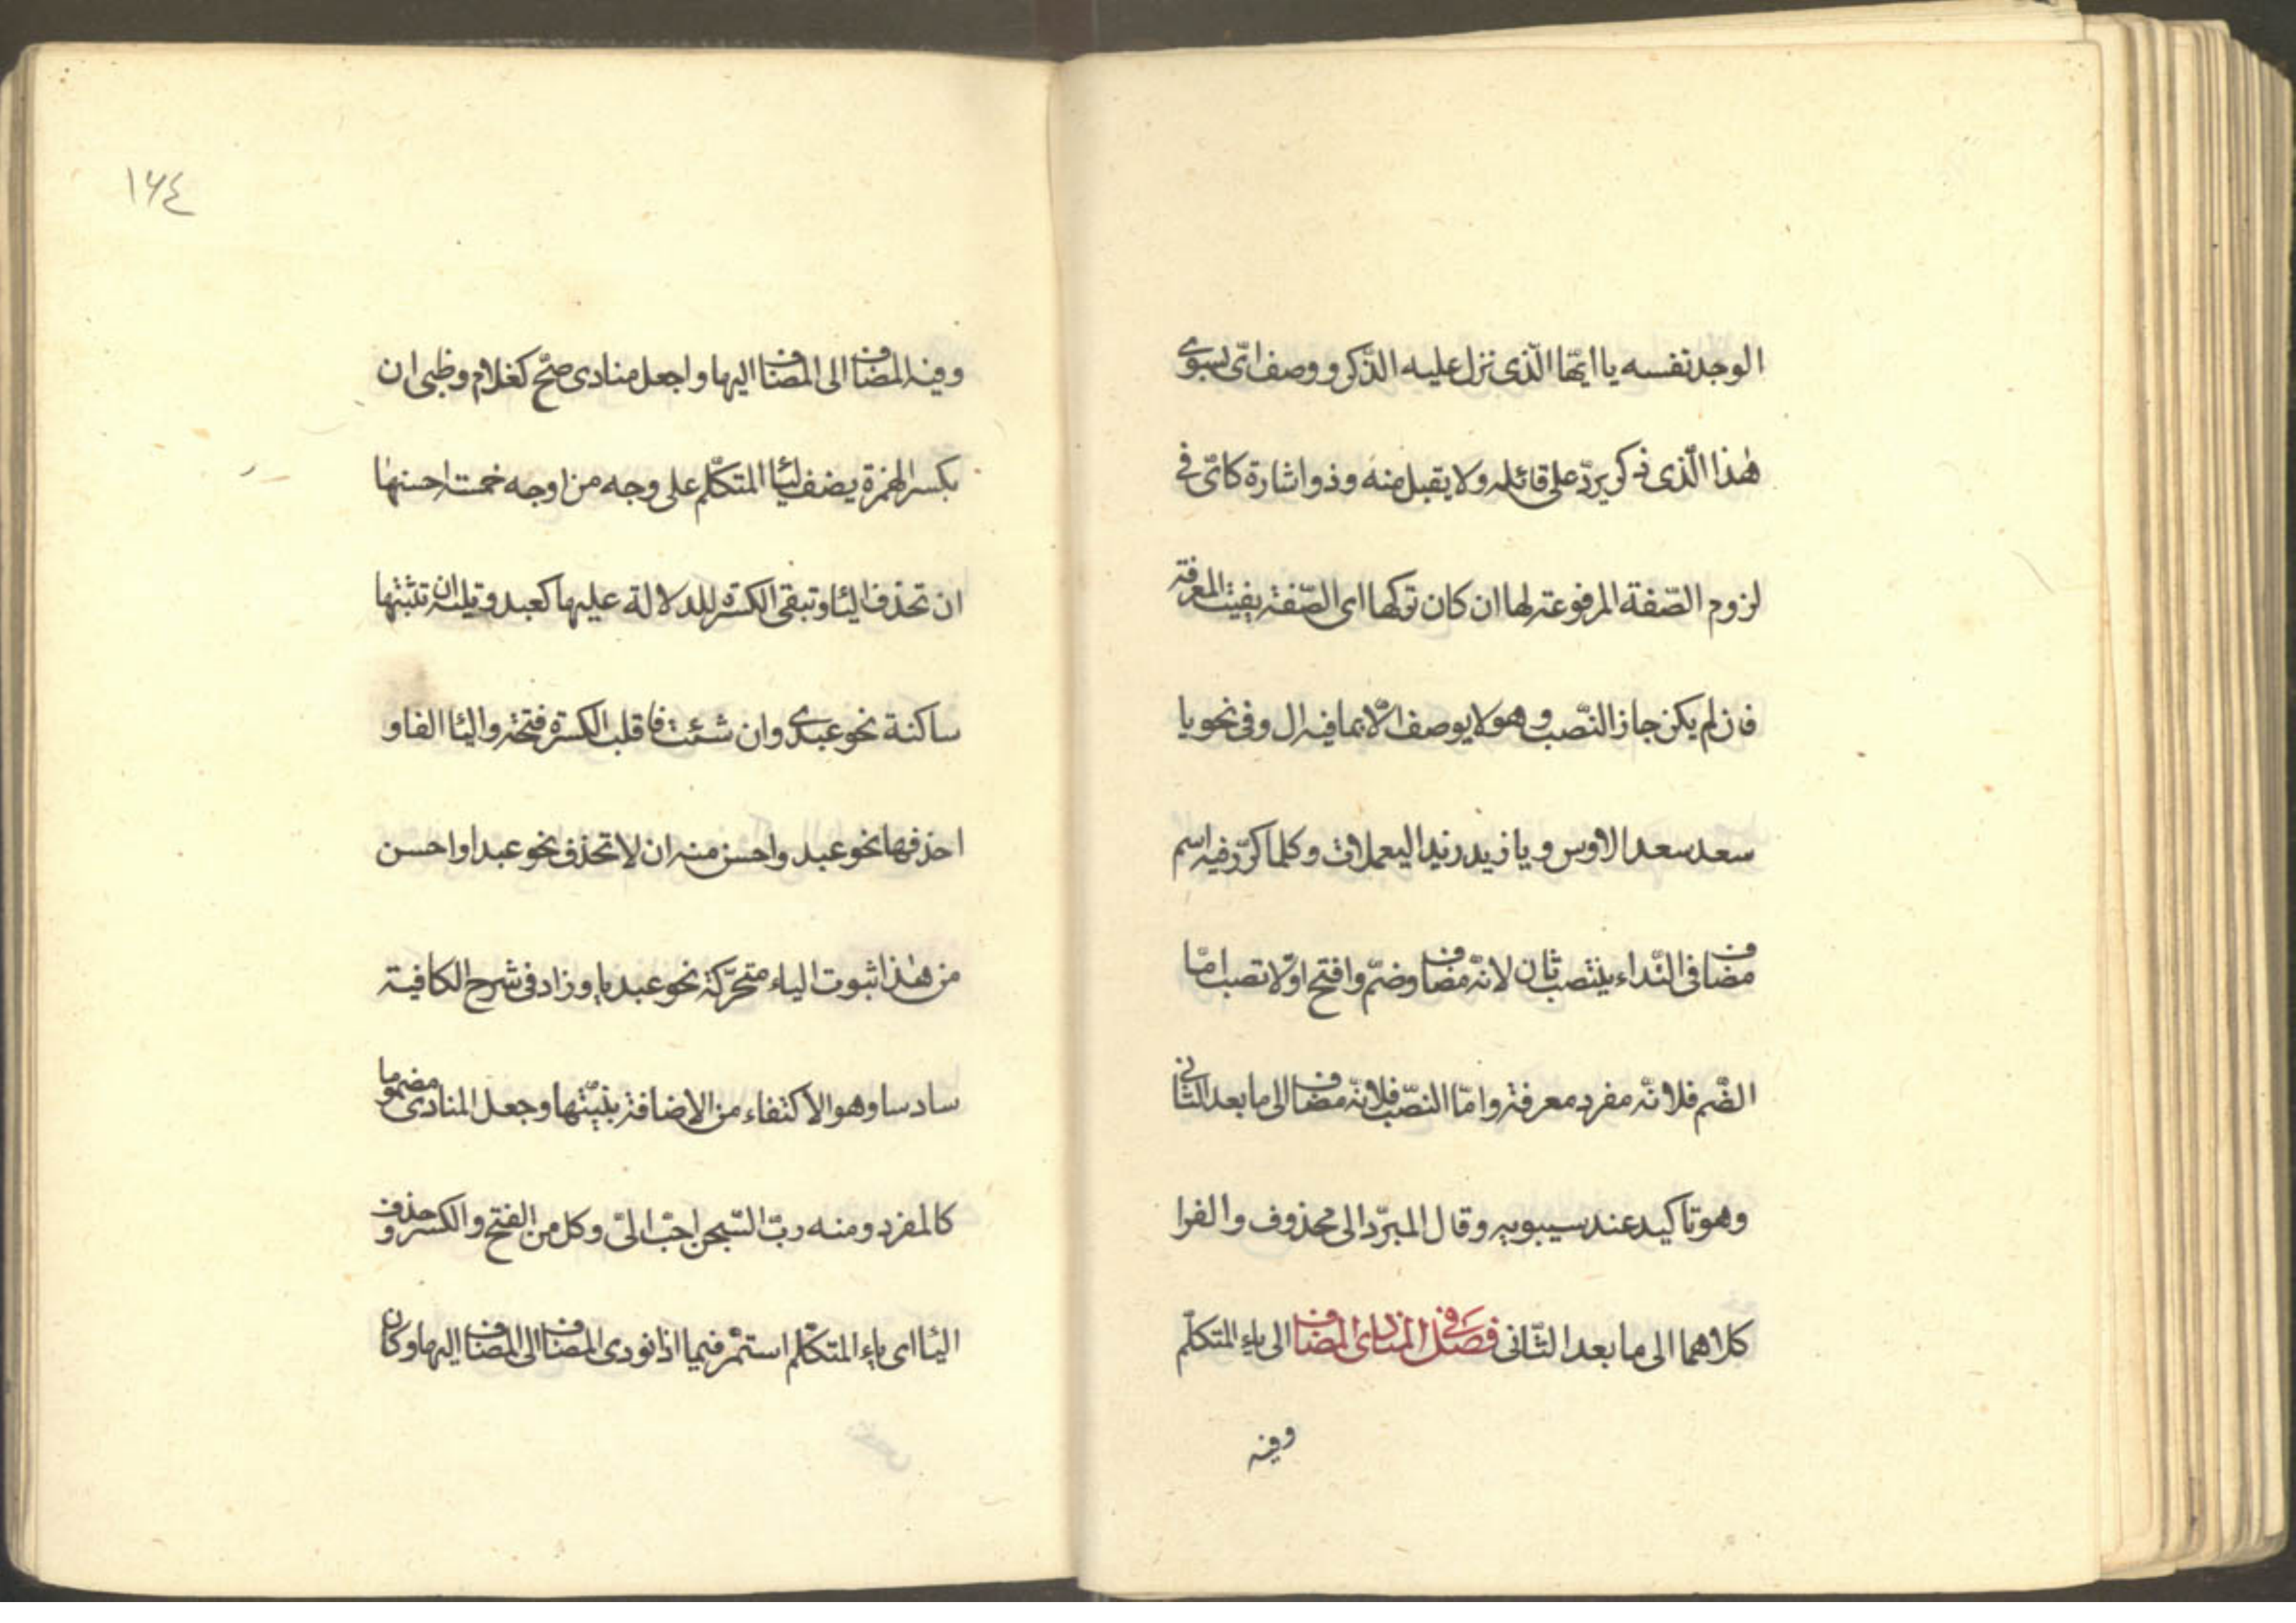 الوجد نفسه يا ايّها الّذى نزل عليه الذّكر و وصف اىّ بسوى
هٰذا الّذى ذكر يردّ على قائله ولا يقبل منه وذو اشارة كاىّ فى
لزوم الصّفة المرفوعة لها ان كان تركها اى الصّفة يفيت المعرفة
فان لم يكن جاز النّصب وهو لا يوصف الّا بما فيه ال وفى نحو يا
سعد سعد الاوس ويا زيد زيد اليعملات وكلما كرّر فيه اسم
مضاف فى النّداء ينتصب ثان لانّه مضاف وضمّ وافتح اوّلا تصب امّا
الضّم فلانّه مفرد معرفة وامّا النصب فلانّه مضاف الى ما بعد الثّانى
وهو تاكيد عند سيبويه وقال المبرّد الى محذوف والفرا
كلاهما الى ما بعد الثّانى فصل فى المنادى المضاف الى ياء المتكلّم
وفيه
١٦٤
وفيه المضاف الى المضاف اليها واجعل منادى صحّ كغلام وظبى ان
بكسر الهمزة يضف ليا المتكلّم على وجه من اوجه خمسة احسنها
ان تحذف اليا وتبقى الكسرة للدلالة عليها كعبد و يليه ان تثبتها
ساكنة نحو عبدى وان شئت فاقلب الكسرة فتحة واليا الفا و
احذفها نحو عبد واحسن منه ان لا تحذف نحو عبدا واحسن
من هٰذا ثبوت الياء متحرّكة نحو عبديا وزاد فى شرح الكافية
سادسا وهو الاكتفاء من الاضافة بنيّتها وجعل المنادى مضموما
كالمفرد ومنه ربّ السّجن احبّ الىّ وكل من الفتح والكسر و حذف
اليا اى ياء المتكلّم استمرّ فيما اذا نودى المضاف الى المضاف اليها وكان